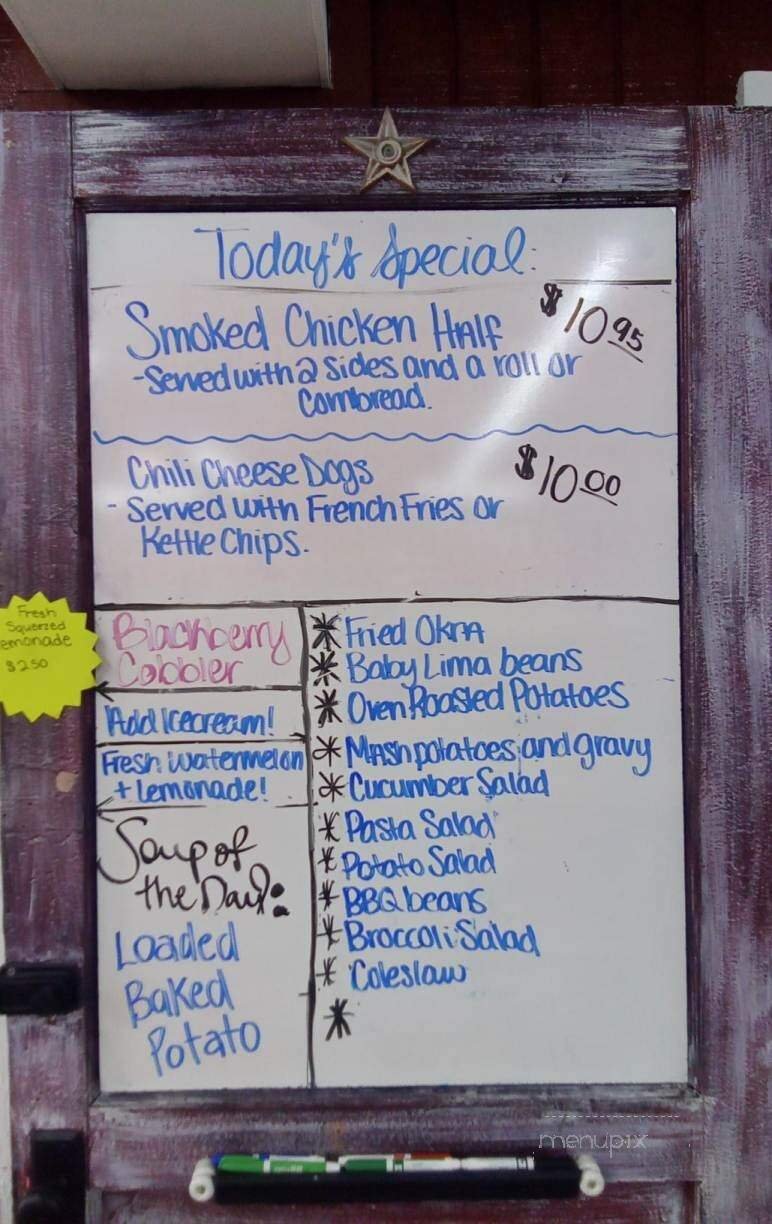 Today's Special:
Smoked Chicken Half
$10.95
-Served with 2 sides and a roll or
Cornbread.
Chili Cheese Dogs
$10.00
- Served with French Fries or
Kettle Chips.
Fresh
Squeezed
emonade
$2.50
Blackberry
Cobbler
Add Icecream!
Fresh Watermelon
+ Lemonade!
Soup of
the Day:
Loaded
Baked
Potato
* Fried Okra
* Baby Lima beans
* Oven Roasted Potatoes
* Mash potatoes and gravy
* Cucumber Salad
* Pasta Salad
* Potato Salad
* BBQ beans
* Broccoli Salad
* Coleslaw
*
menupix